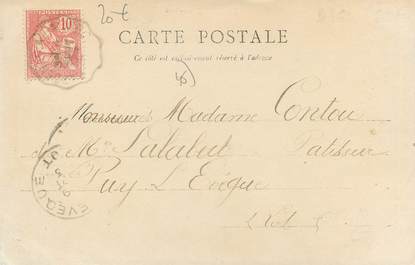 20 €
10
CARTE POSTALE
Ce côté est exclusivement réservé à l'adresse
Monsieur Madame Contou
Mr Lalabut Patissier
Puy L'Evêque
Lot
EVEQUE